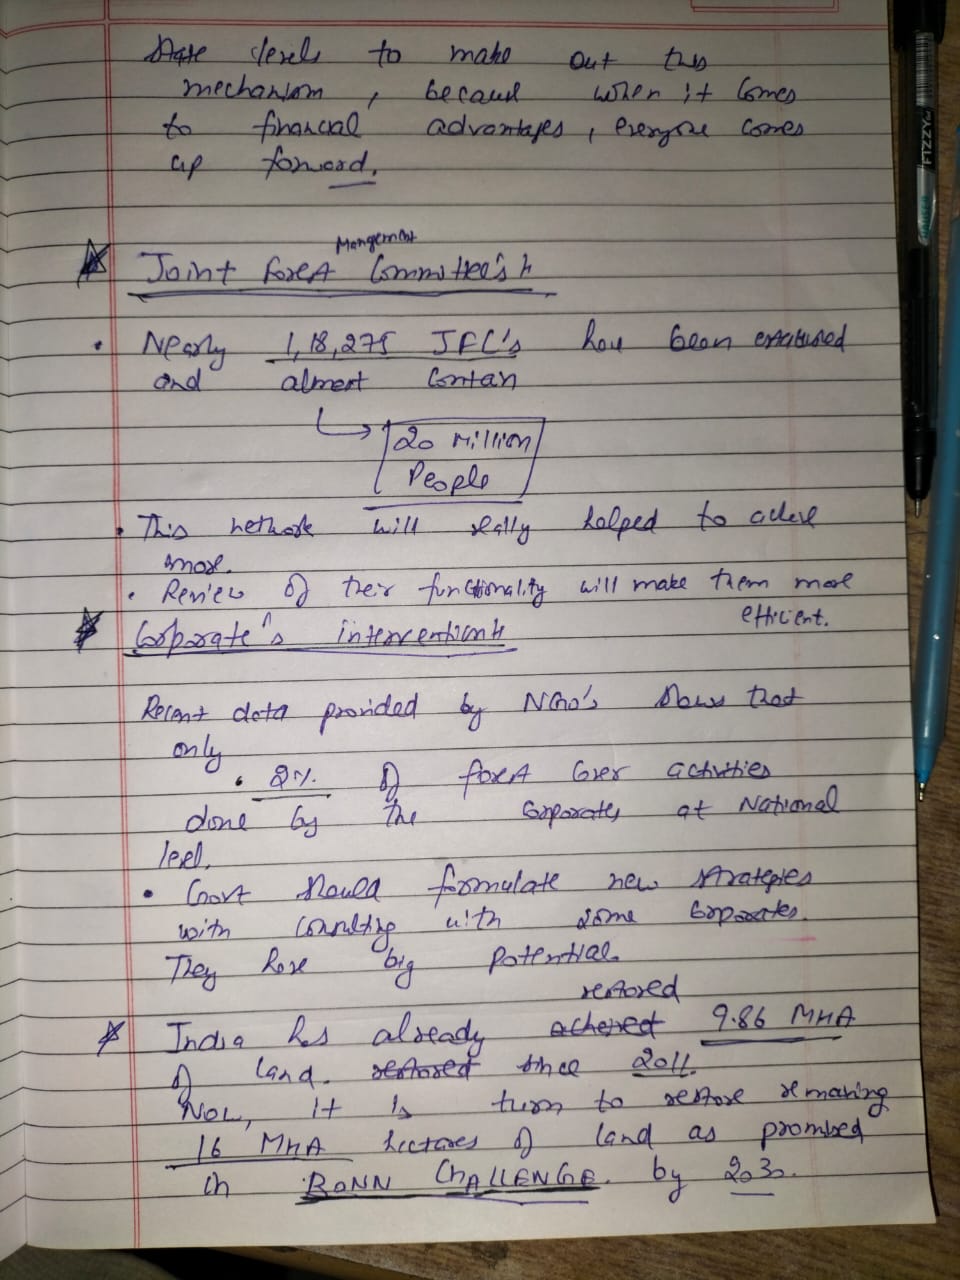 State levels to make out this
mechanism, because when it comes
to financial advantages, everyone comes
up forward.
Mangement
Joint Forest Committee's
• Nearly 1,18,275 JFC's have been
and almost contain
20 Million
People
• This network will really helped to
more.
• Review of their functionality will make them more
efficient.
Corporate's intervention
Recent data provided by NGO's shows that
only
• 2% of forest cover activities
done by the corporates at National
level.
• Govt should formulate new strategies
with consulting with some corporates.
They have big potential.
restored
India has already achieved 9.86 MHA
of land. restored since 2011.
Now, it is turn to restore remaining
16 MHA hectares of land as promised
in BONN CHALLENGE. by 2030.
FIZZY